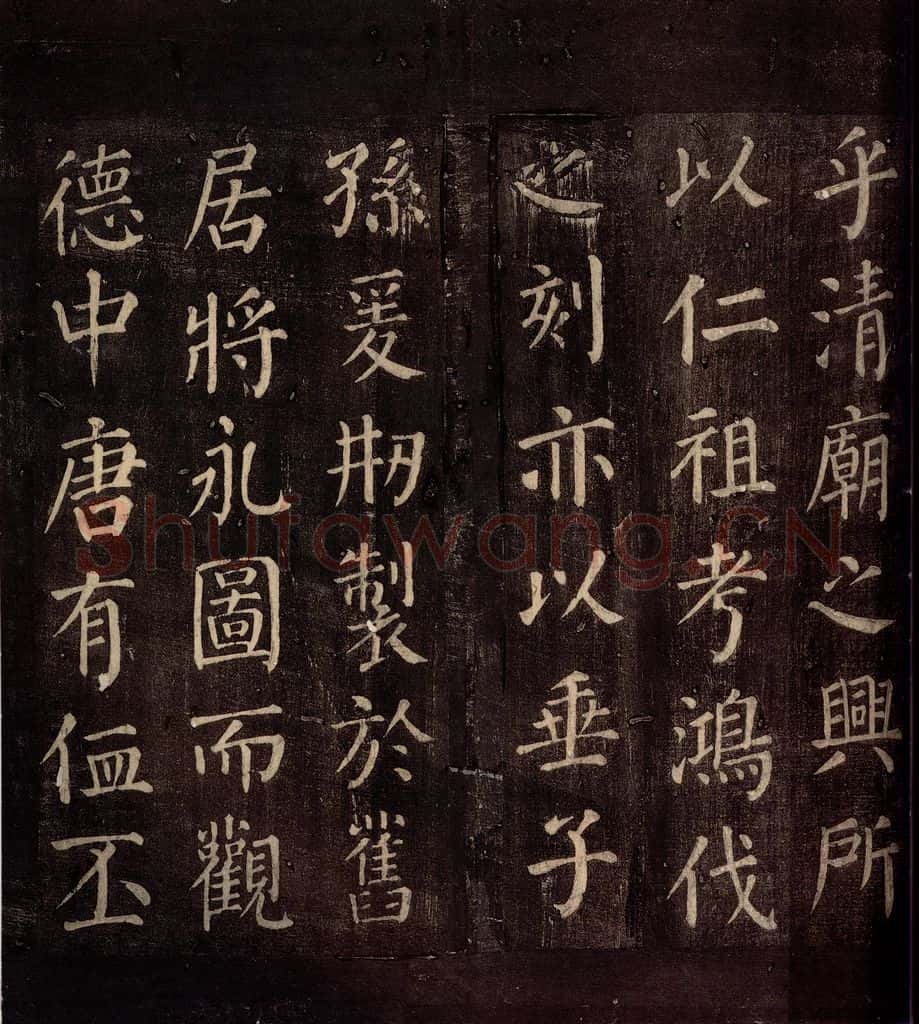 乎清廟之興所
以仁祖考鴻伐
之刻亦以垂子
孫爰刱製於舊
居將永圖而觀
德中唐有侐丕
Shufawang.CN